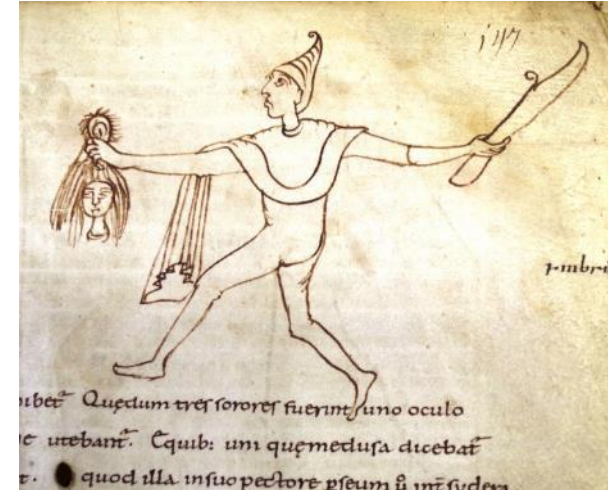 147
Quędum tres sorores fuerint uno oculo
utebant̃. Equib: um quęmedusa dicebat̃
quod illa insuo pectore pseum ũ int̃ sydera